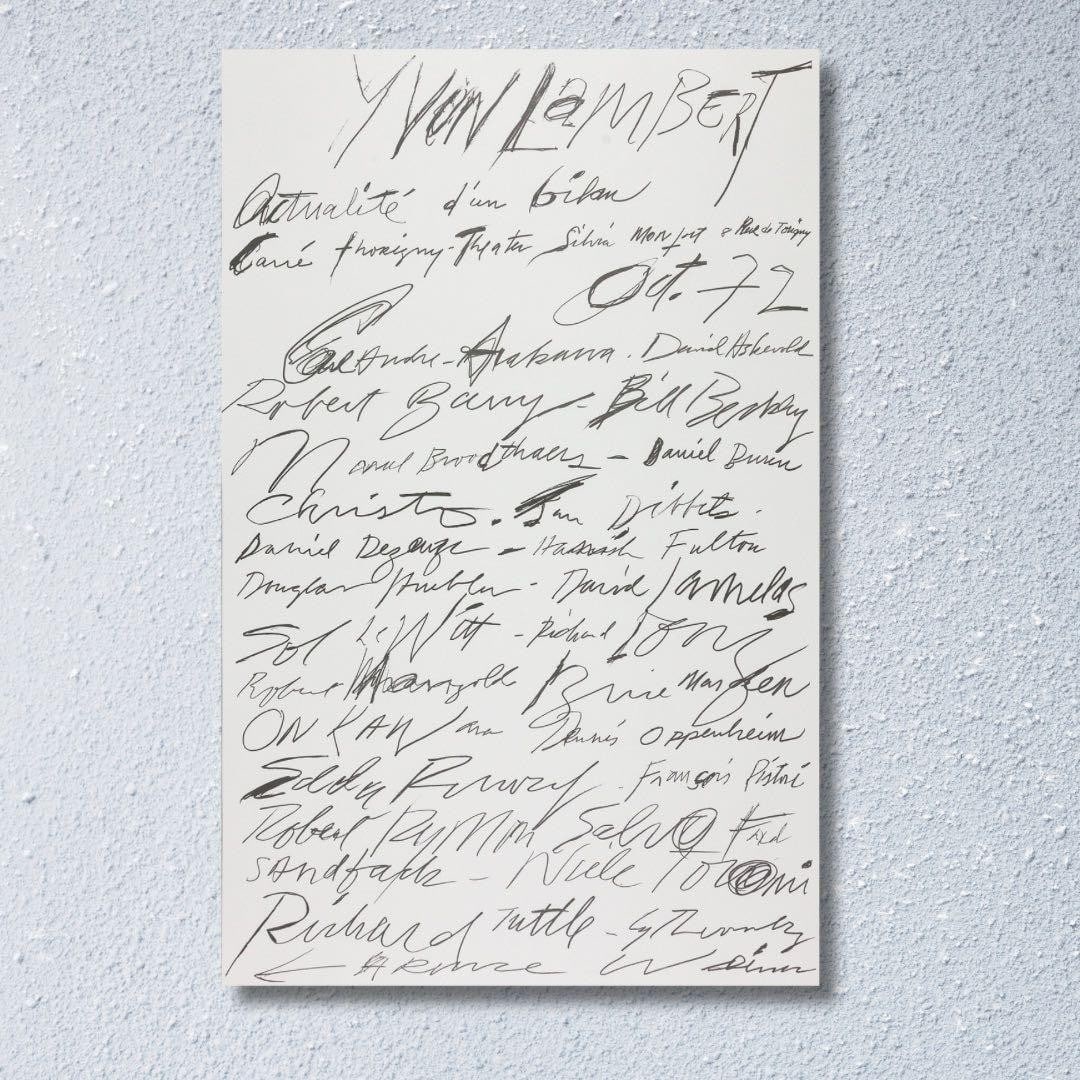 YVON LAMBERT
Actualité d'un bilan
Carré Thorigny-Theater Silvia Monfort 8 Rue de Torigny
Oct. 72
Carl Andre - Arakawa. David Askevold
Robert Barry - Bill Beckley
Marcel Broodthaers - Daniel Buren
Christo. Jan Dibbets.
Daniel Dezeuze - Hamish Fulton
Douglas Huebler - David Lamelas
Sol LeWitt - Richard Long
Robert Mangold Brice Marden
ON KAWara Dennis Oppenheim
Edda Renouf. François Ristori
Robert Ryman Salvo Fred
SANdback - Niele Toroni
Richard Tuttle - Cy Twombly
LAWRENCE Weiner